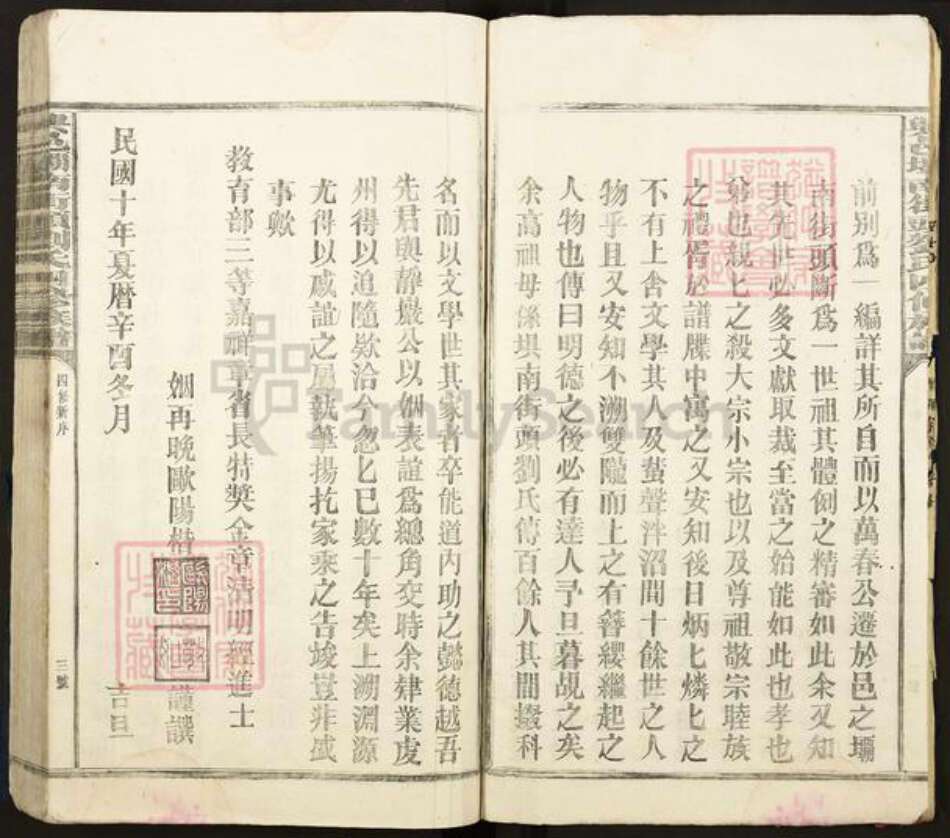 前別爲一編詳其所自而以萬春公遷於邑之壩
南街頭斷爲一世祖其體例之精審如此余又知
其先世必多文獻取裁至當之始能如此也孝也
弟也親匕之殺大宗小宗也以及尊祖敬宗睦族
之禮胥於譜牒中寓之又安知後日炳匕燐匕之
不有上舍文學其人及蜚聲泮沼間十餘世之人
物乎且又安知不溯雙隴而上之有簪纓繼起之
人物也傳曰明德之後必有達人予旦暮覘之矣
余高祖母係垻南街頭劉氏傳百餘人其間掇科
名而以文學世其家者卒能道內助之懿德越吾
先君與靜巖公以姻表誼爲總角交時余肄業虔
州得以追隨欵洽今忽匕已數十年矣上溯淵源
尤得以戚誼之屬執筆揚扢家乘之告竣豈非盛
事歟
教育部三等嘉祥章省長特獎金章清明經進士
姻再晚歐陽 謹譔
民國十年夏曆辛酉冬月 吉旦
四修新序
三號
FamilySearch